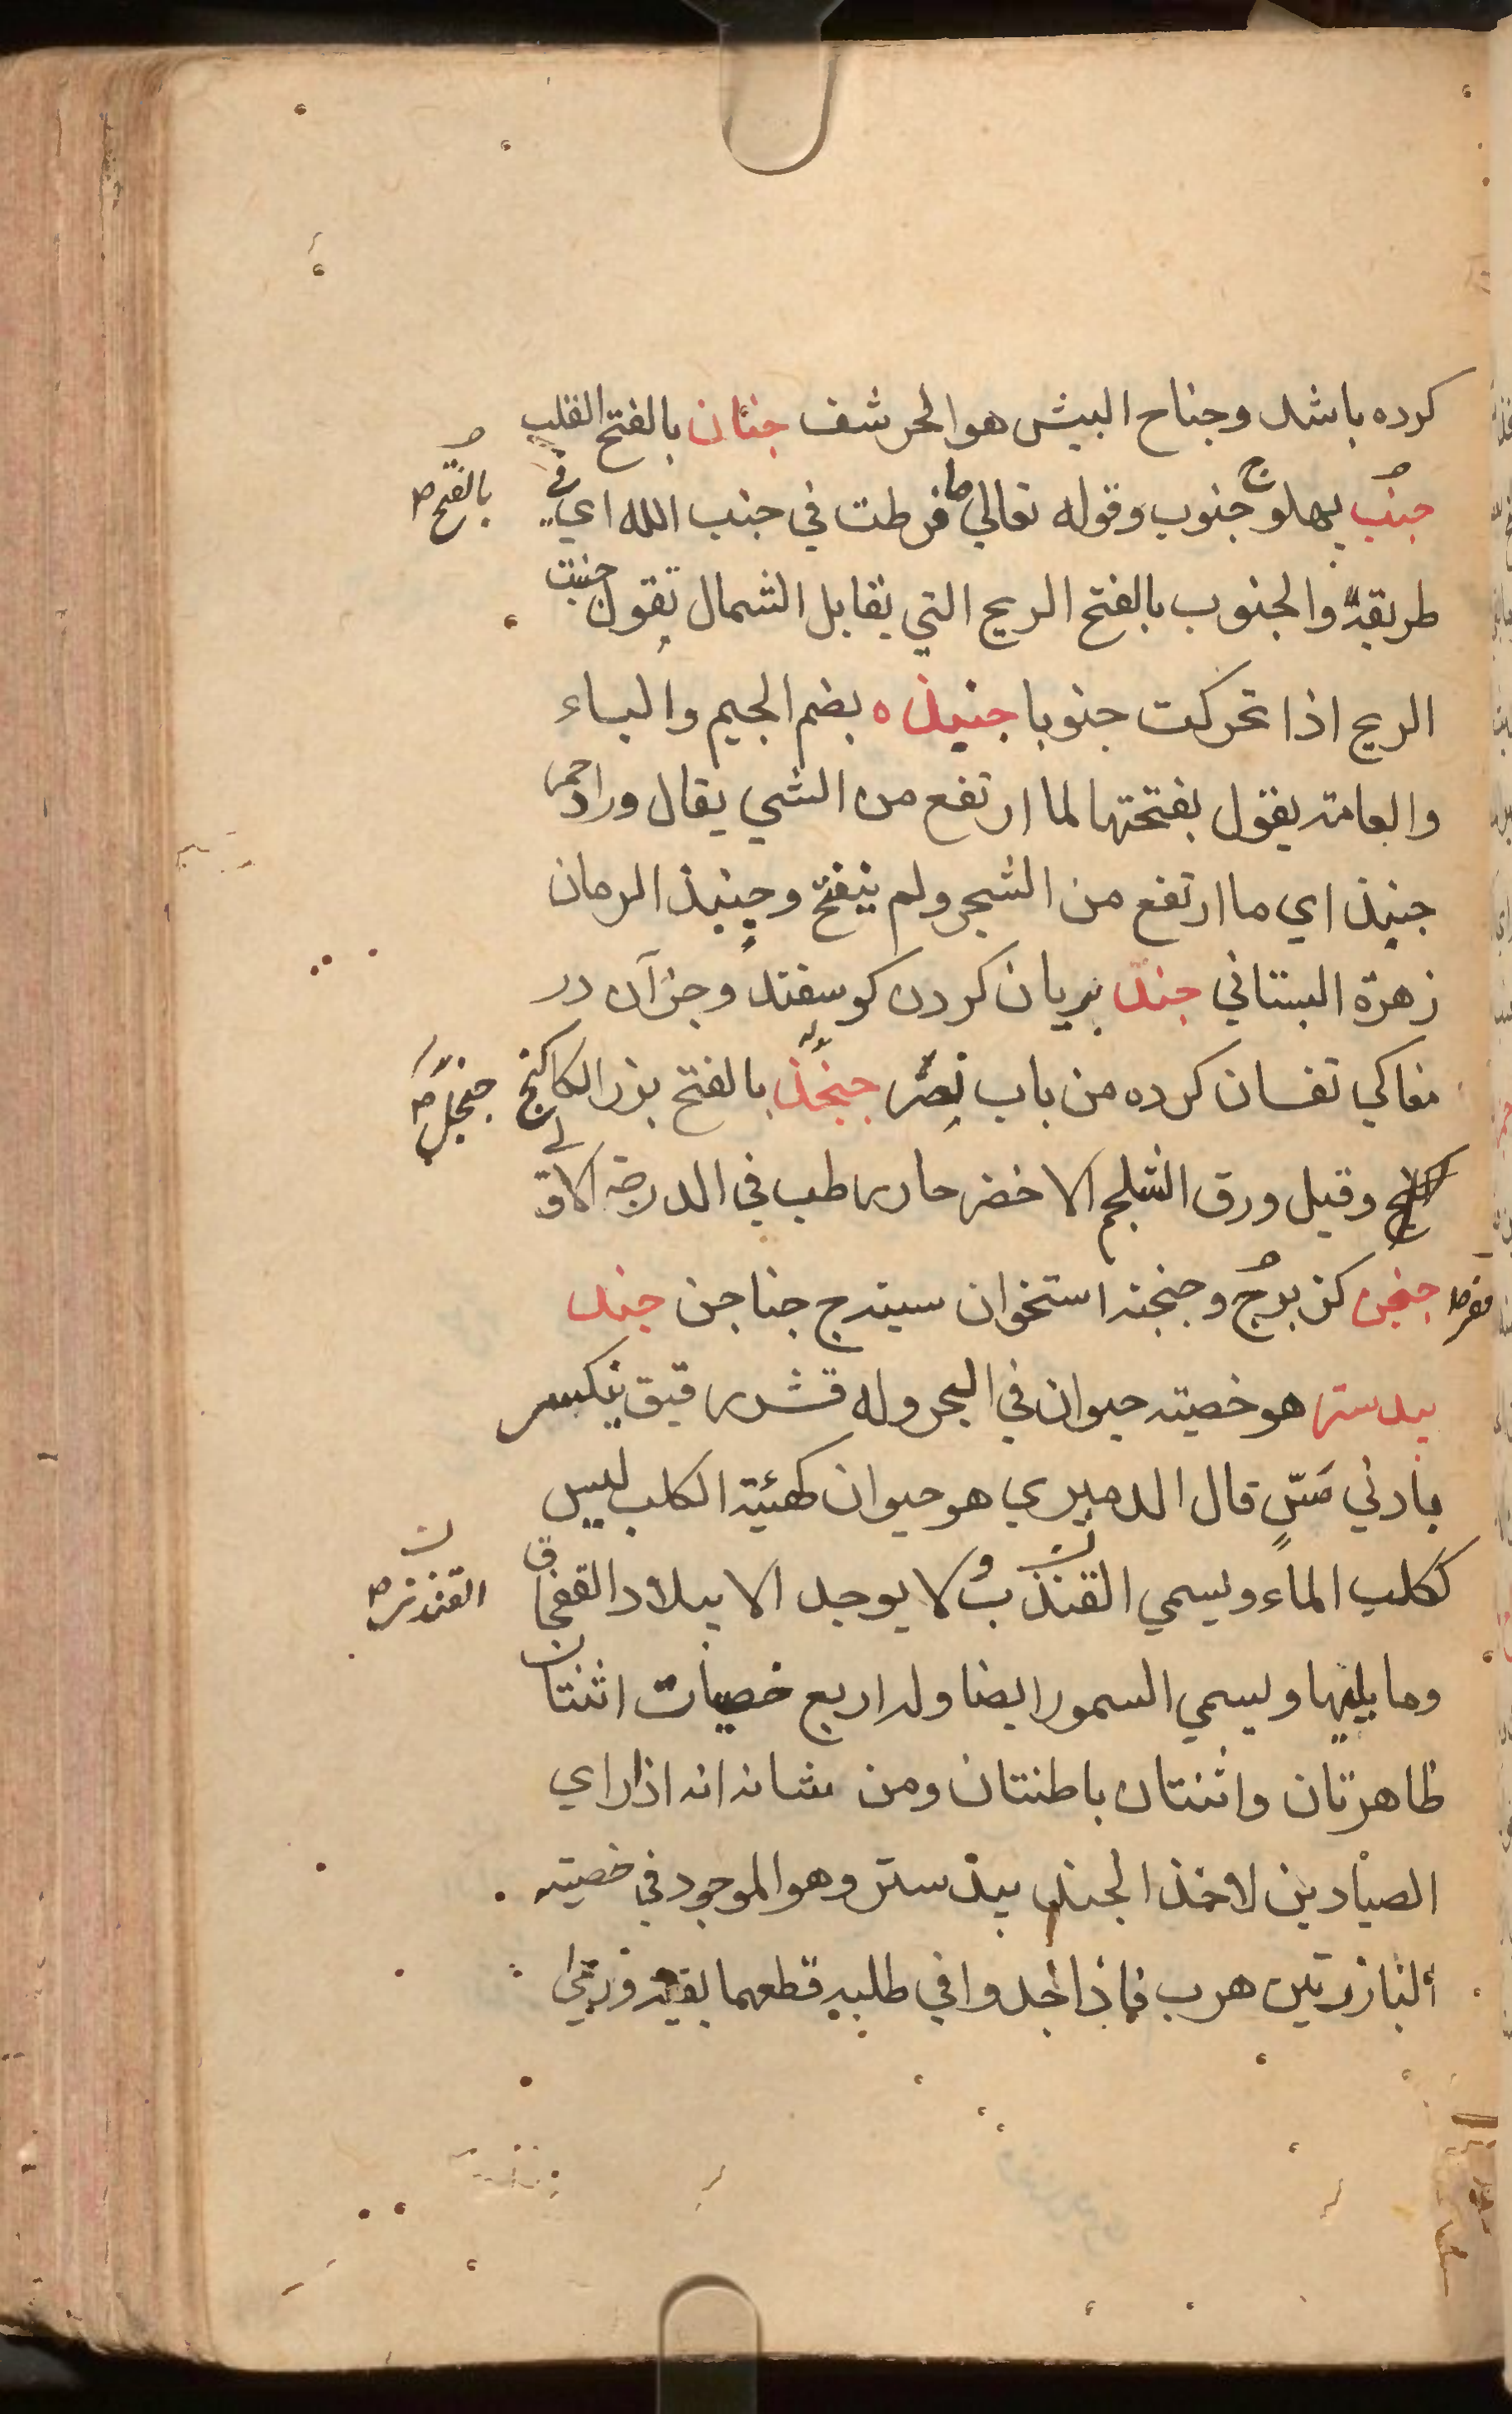 كرده باشد وجناح البيش هو الحرشف جنان بالفتح القلب
جنب پهلو ج جنوب وقوله تعالي ما فرطت في جنب الله اي في
بالفتح صح
طريقه والجنوب بالفتح الريح التي يقابل الشمال تقول جنبت
الريح اذا تحركت جنوبا جنبذه بضم الجيم والباء
والعامة يقول بفتحتها لما ارتفع من الشي يقال وراد احمر
جنبذ اي ما ارتفع من الشجر ولم ينفتح وجنبذ الرمان
زهرة البستاني جند بريان كردن كوسفند وجز آن در
مغاكي تفسان كرده من باب نصر جنجذ بالفتح بزر الكاكنج
جنجل صح
وقيل ورق الشلجم الاخضر حار رطب في الدرجة الاولي
جنجن كزبرج وجنجنه استخوان سينه ج جناجن جند
بيدستر هو خصيته حيوان في البحر وله قشر رقيق ينكسر
بادني مس قال الدميري هو حيوان كهيئة الكلب ليس
ككلب الماء ويسمي القندب ولا يوجد الا ببلاد القفجاق
القندر صح
وما يليها ويسمي السمور ايضا وله اربع خصيات اثنتان
ظاهرتان واثنتان باطنتان ومن شانه انه اذا راي
الصيادين لاخذ الجند بيدستر وهو الموجود في خصيته
البارزتين هرب فاذا اجدوا في طلبه قطعهما بفيه ورمي